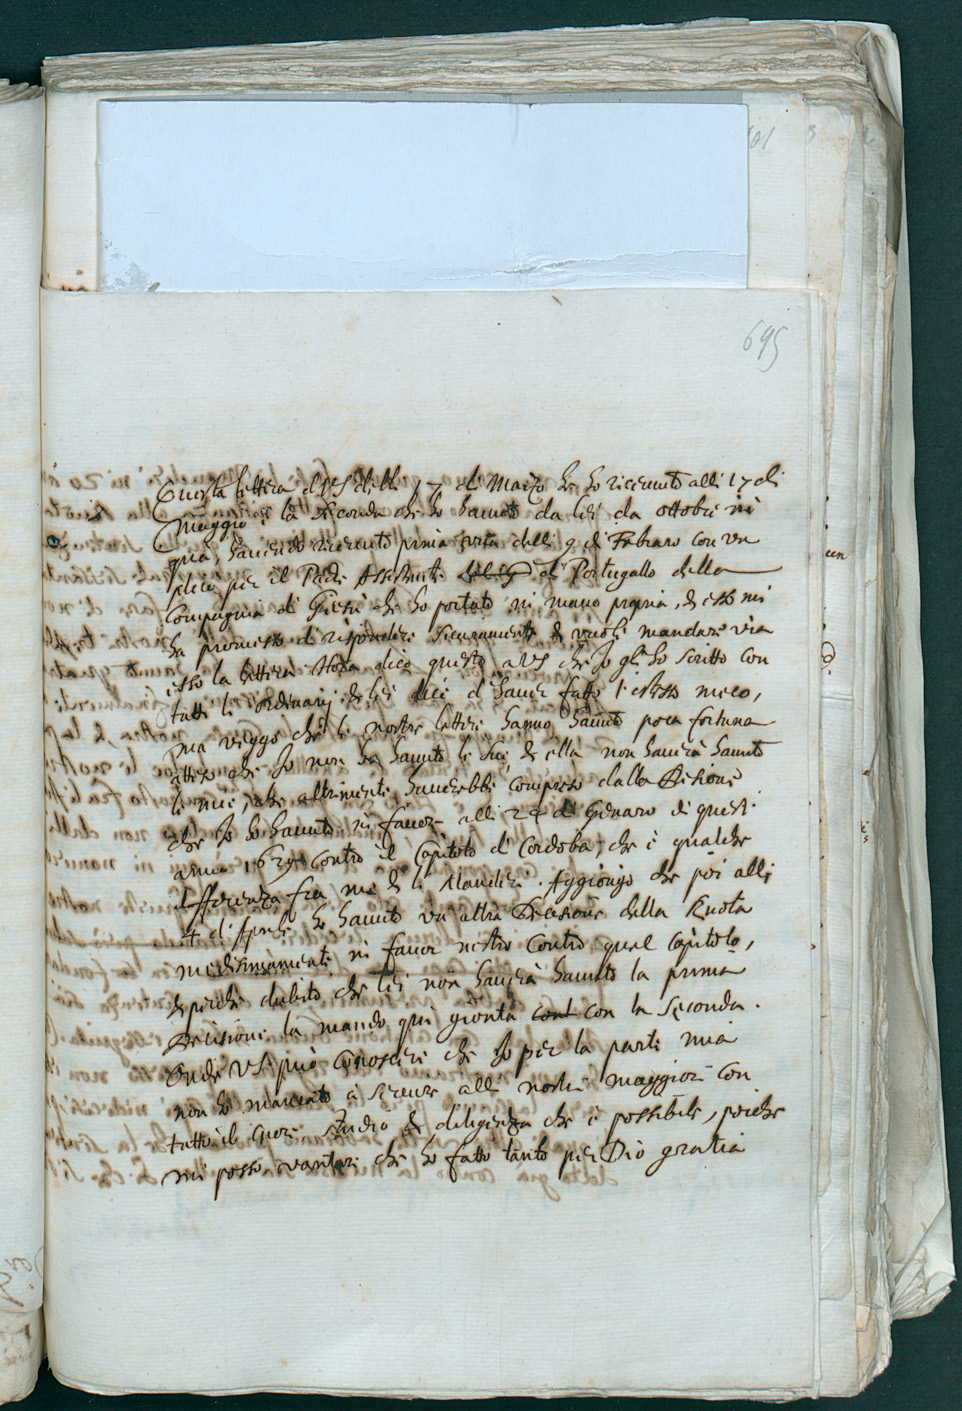 695
Questa lettera di VS delli 17 di Marzo che ho ricevuto alli 17 di
Maggio è la seconda che ho havuto da lei da ottobre in
qua, havendo ricevuto prima vna delli 9 di Febraro con vn
plico per il Padre Assistente di Portugallo della
Compagnia di Giesù che ho portato in mano propria, & esso mi
ha promesso di rispondere sicuramente & vuole mandare via
esso la lettera. Hora dico questo a VS che Io gli ho scritto con
tutti li ordinarij & lei dice d'haver fatto l'istesso meco,
ma veggo che le nostre lettere hanno havuto poca fortuna
atteso che Io non ho havuto le sue, & ella non haverà havuto
le mie, che altrimente haverebbe compreso dalla Decisione
che Io ho havuto in favore alli 24 di Genaro di questo
anno 1629 contro il Capitolo di Cordoba, che è qualche
differenza fra me & li Mandeze. Aggiongo che poi alli
4 di Aprile ho havuto vn altra Decisione della Ruota
medesimamente in favor nostro contro qual capitolo,
& perche dubito che lei non haverà havuto la prima
Decisione la mando qui gionta con la seconda.
Onde VS può conoscere che Io per la parte mia
non ho mancato à servire alli nostri maggiori con
tutto il cuore studio & diligenza che è possibile, poiche
mi posso vantare che ho fatto tanto per Dio gratia